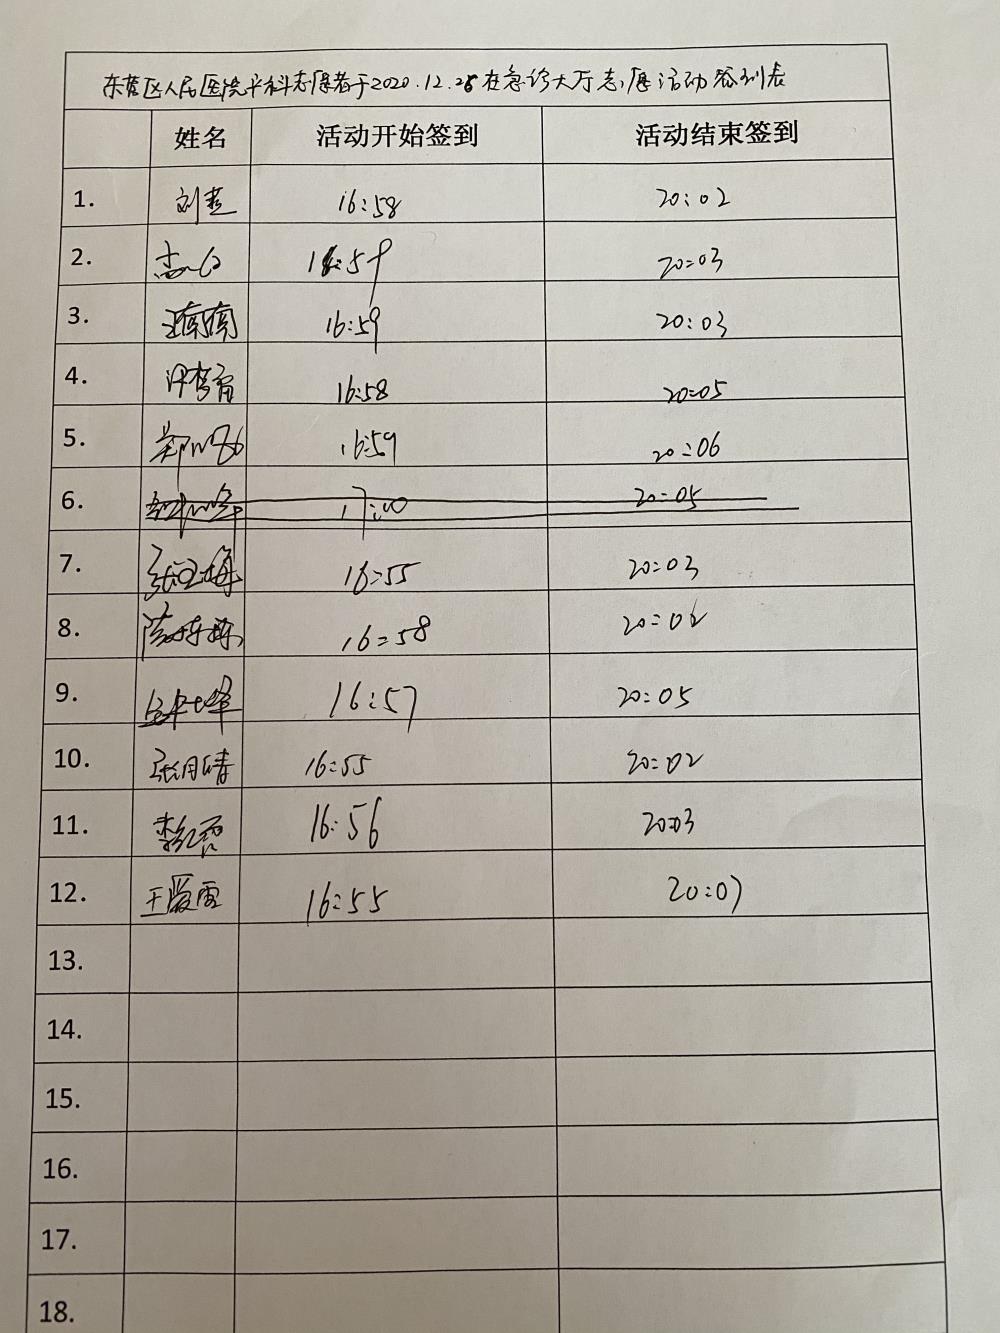 东营区人民医院 科志愿者于2020.12.25在急诊大厅志愿活动签到表
姓名 活动开始签到 活动结束签到
1. 刘芸 16:58 20:02
2. 16:59 20:03
3. 王南南 16:59 20:03
4. 16:58 20:05
5. 16:59 20:06
6. 17:00 20:05
7. 16:55 20:03
8. 16:58 20:06
9. 16:57 20:05
10. 张月晴 16:55 20:02
11. 李红霞 16:56 20:03
12. 王爱雷 16:55 20:07
13.
14.
15.
16.
17.
18.